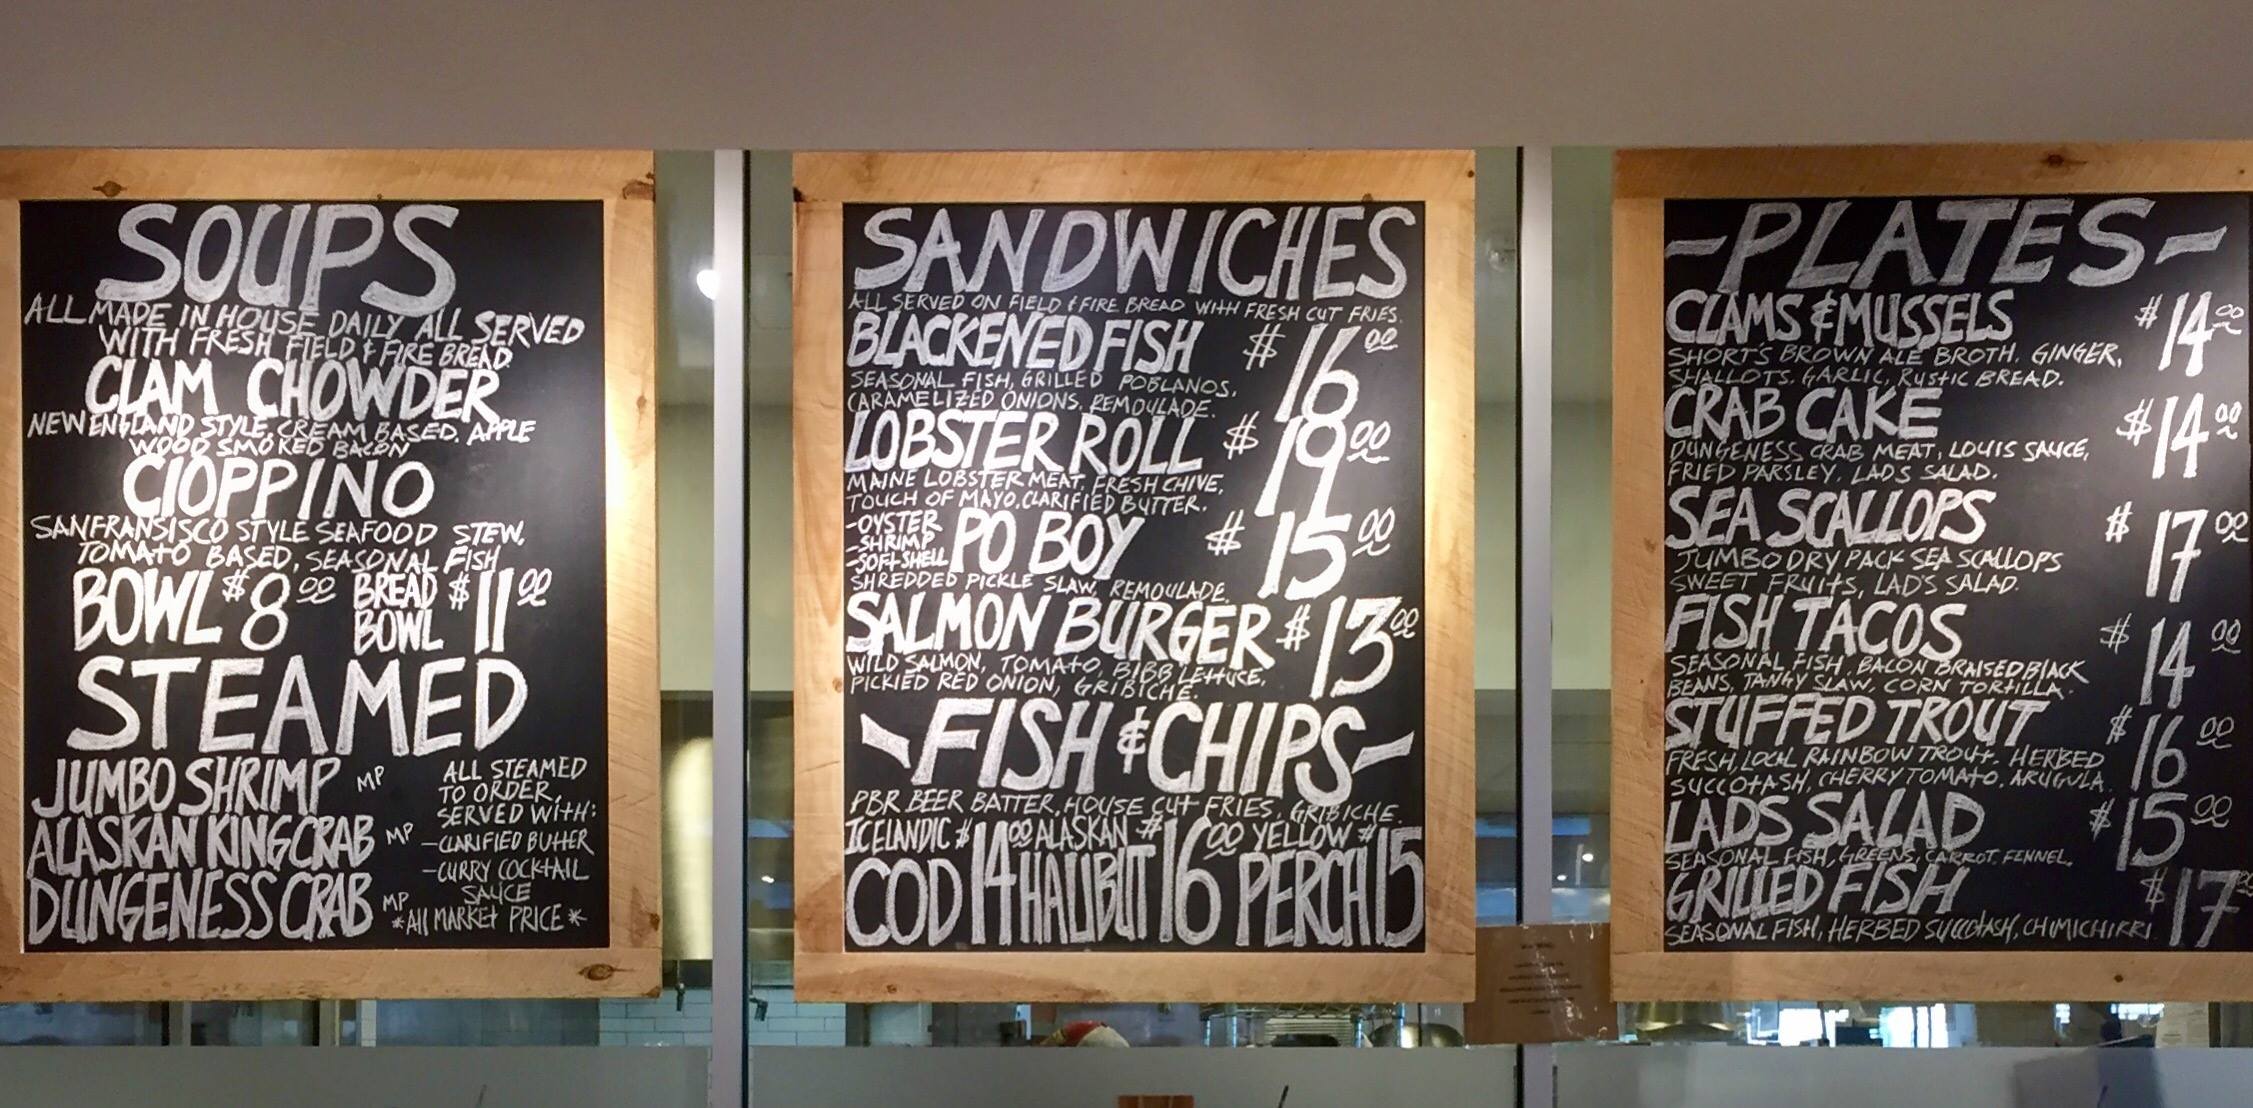 SOUPS
ALL MADE IN HOUSE DAILY ALL SERVED
WITH FRESH FIELD & FIRE BREAD
CLAM CHOWDER
NEW ENGLAND STYLE, CREAM BASED, APPLE
WOOD SMOKED BACON
CIOPPINO
SANFRANSISCO STYLE SEAFOOD STEW,
TOMATO BASED, SEASONAL FISH
BOWL $8.00 BREAD BOWL $11.00
STEAMED
JUMBO SHRIMP MP
ALASKAN KING CRAB MP
DUNGENESS CRAB MP
ALL STEAMED
TO ORDER,
SERVED WITH:
-CLARIFIED BUTTER
-CURRY COCKTAIL
SAUCE
*All MARKET PRICE*
SANDWICHES
ALL SERVED ON FIELD & FIRE BREAD WITH FRESH CUT FRIES.
BLACKENED FISH $16.00
SEASONAL FISH, GRILLED POBLANOS,
CARAMELIZED ONIONS, REMOULADE.
LOBSTER ROLL $19.00
MAINE LOBSTER MEAT, FRESH CHIVE,
TOUCH OF MAYO, CLARIFIED BUTTER.
-OYSTER
-SHRIMP
-SOFT SHELL
PO BOY $15.00
SHREDDED PICKLE SLAW, REMOULADE.
SALMON BURGER $13.00
WILD SALMON, TOMATO, BIBB LETTUCE,
PICKIED RED ONION, GRIBICHE.
-FISH & CHIPS-
PBR BEER BATTER, HOUSE CUT FRIES, GRIBICHE.
ICELANDIC COD $14.00 ALASKAN HALIBUT $16.00 YELLOW PERCH $15
-PLATES-
CLAMS & MUSSELS $14.00
SHORT'S BROWN ALE BROTH, GINGER,
SHALLOTS, GARLIC, RUSTIC BREAD.
CRAB CAKE $14.00
DUNGENESS CRAB MEAT, LOUIS SAUCE,
FRIED PARSLEY, LADS SALAD.
SEA SCALLOPS $17.00
JUMBO DRY PACK SEA SCALLOPS
SWEET FRUITS, LAD'S SALAD.
FISH TACOS $14.00
SEASONAL FISH, BACON BRAISED BLACK
BEANS, TANGY SLAW, CORN TORTILLA.
STUFFED TROUT $16.00
FRESH, LOCAL RAINBOW TROUT, HERBED
SUCCOTASH, CHERRY TOMATO, ARUGULA.
LADS SALAD $15.00
SEASONAL FISH, GREENS, CARROT, FENNEL.
GRILLED FISH $17.00
SEASONAL FISH, HERBED SUCCOTASH, CHIMICHIRRI